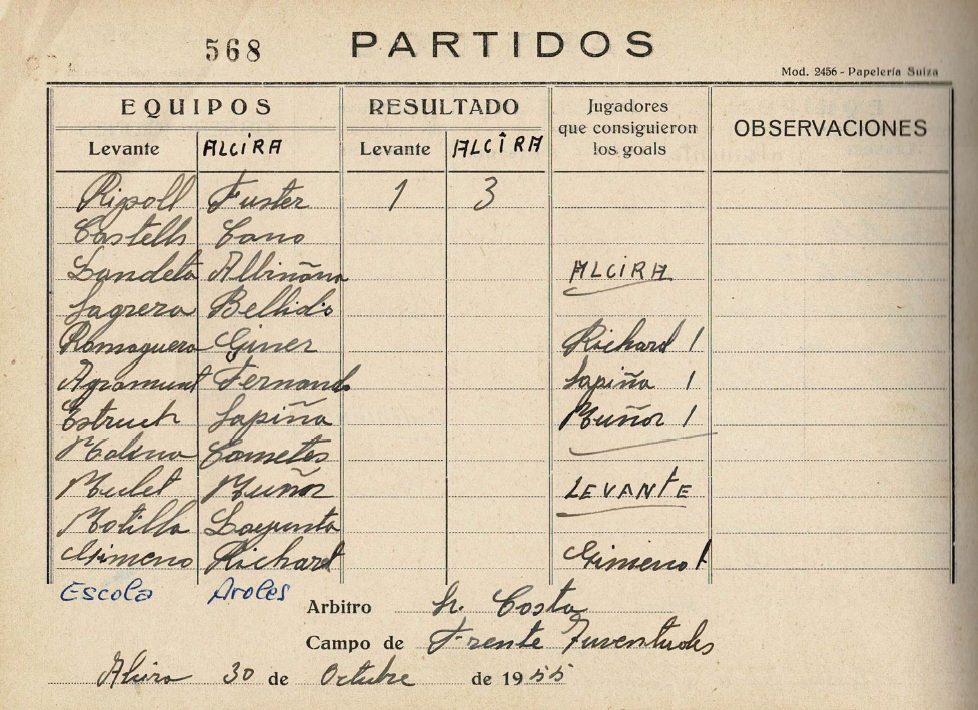 568 PARTIDOS
Mod. 2456 - Papelería Suiza
EQUIPOS RESULTADO Jugadores que consiguieron los goals OBSERVACIONES
Levante ALCIRA Levante ALCIRA
Ripoll Fuster 1 3
Castells Cano
Landeta Albiñana ALCIRA
Sagrera Bellido
Romaguera Giner Richard 1
Agramunt Fernando Sapiña 1
Estruch Sapiña Muñoz 1
Molina Cometes
Mulet Muñoz LEVANTE
Motilla Layunta
Gimeno Richard Gimeno 1
Escola Aroles
Arbitro Sr. Costa
Campo de Frente Juventudes
Alcira 30 de Octubre de 1955